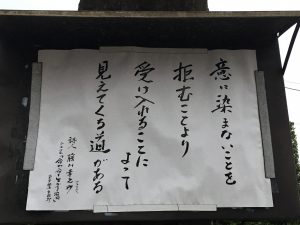 意に染まないことを
拒むことより
受け入れることに
よって
見えてくる道がある
詩人